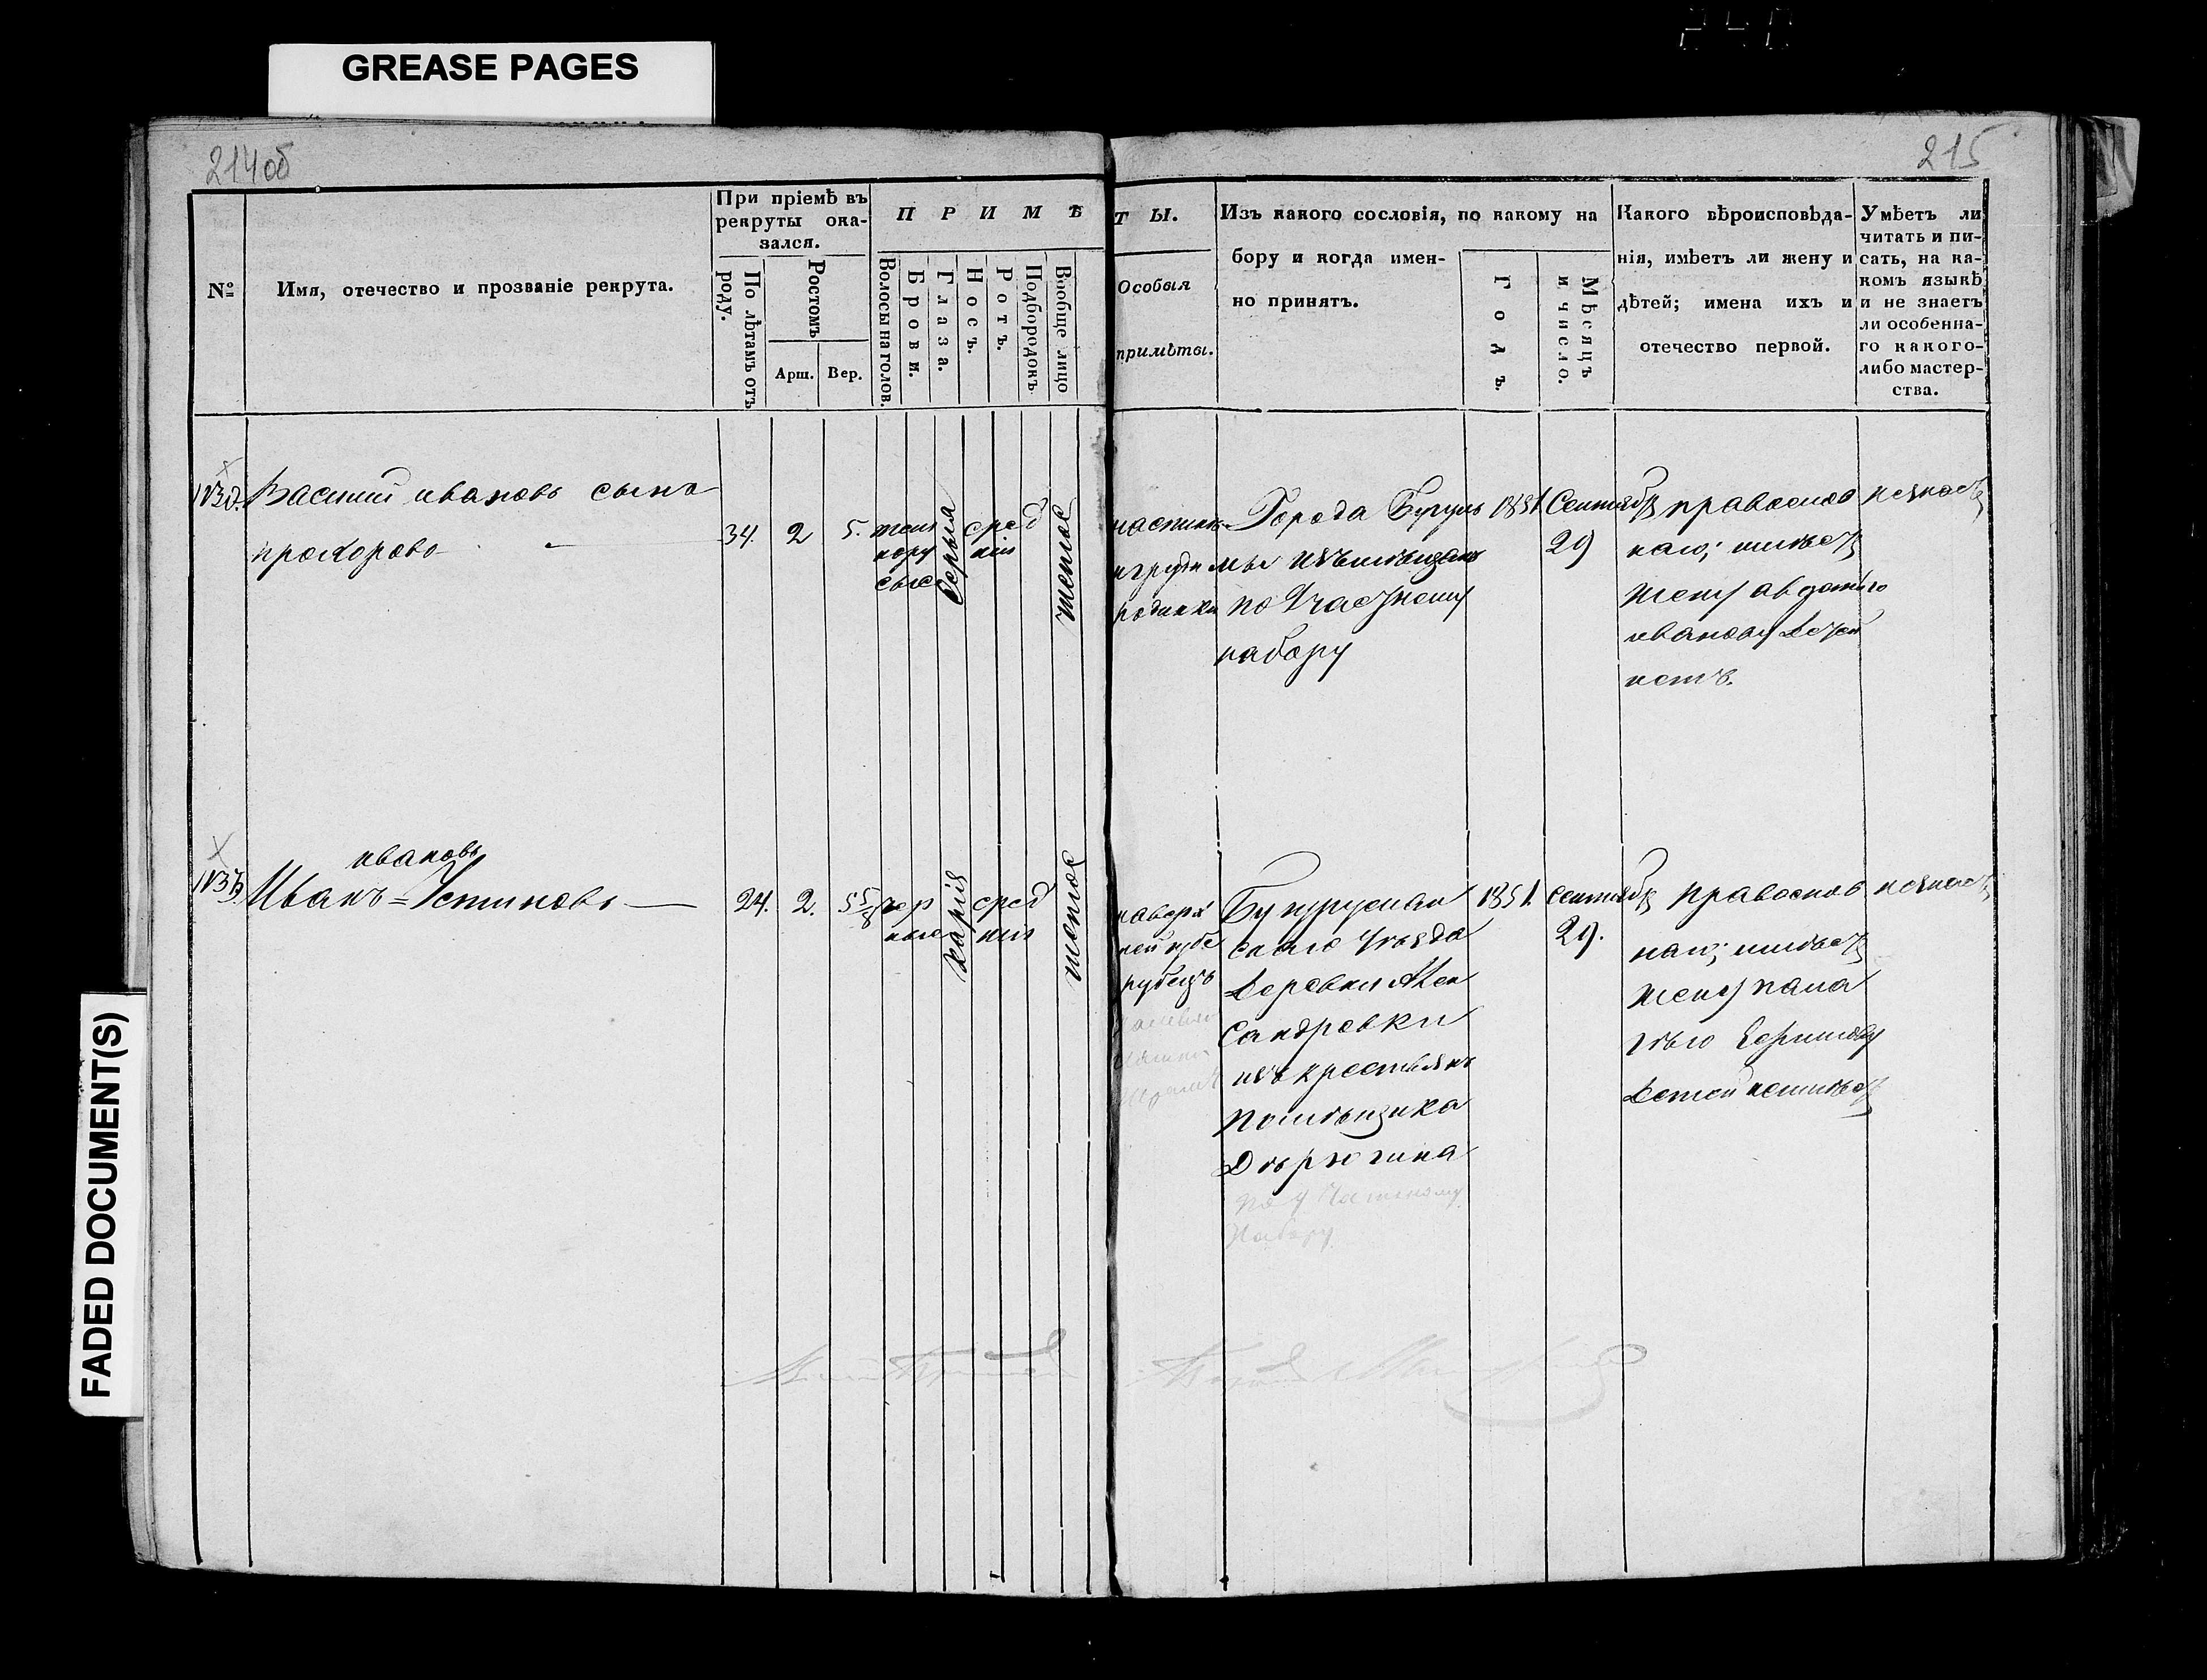 GREASE PAGES
214об
215
№
Имя, отечество и прозваніе рекрута.
При пріемѣ въ
рекруты ока-
зался.
По лѣтамъ отъ
роду.
Ростомъ
Арш.
Вер.
ПРИМѢ
Волосы на голов.
Брови.
Глаза.
Носъ.
Ротъ.
Подбородокъ
Вообще лицо
ТЫ.
Особыя
примѣты.
Изъ какого сословія, по какому на
бору и когда имен-
но принятъ.
Годъ.
Мѣсяцъ
и число.
Какого вѣроисповѣда-
нія, имѣетъ ли жену и
дѣтей; имена ихъ и
отечество первой.
Умѣетъ ли
читать и пи-
сать, на ка-
комъ языкѣ
и не знаетъ
ли особенна-
го какого-
либо мастер-
ства.
Василий ивановъ сынъ
прохоровъ
34.
2
5.
темн
нору
сые
серыя
сред
ніи
темное
наспине
игруди
родинки
Города Бугуль
мы изъ мѣщанъ
по Частному
набору
1851
Сентяб
29
православ
наго; имѣет
жену авдотію
иванову детей
нетъ.
ивановъ
Иванъ = Устиновъ
24.
2.
5 5/8
чер
ные
карія
сред
ніи
наверх
ней губе
рубецъ
Бугуруслан
скаго уѣзда
деревни Алек
сандровки
изъ крестьянъ
помѣщика
Дѣрюгина
по Частному
Набору
1851.
сентяб
29.
православ
наго; имѣет
жену пала
гѣю
детей неимѣет
FADED DOCUMENT(S)